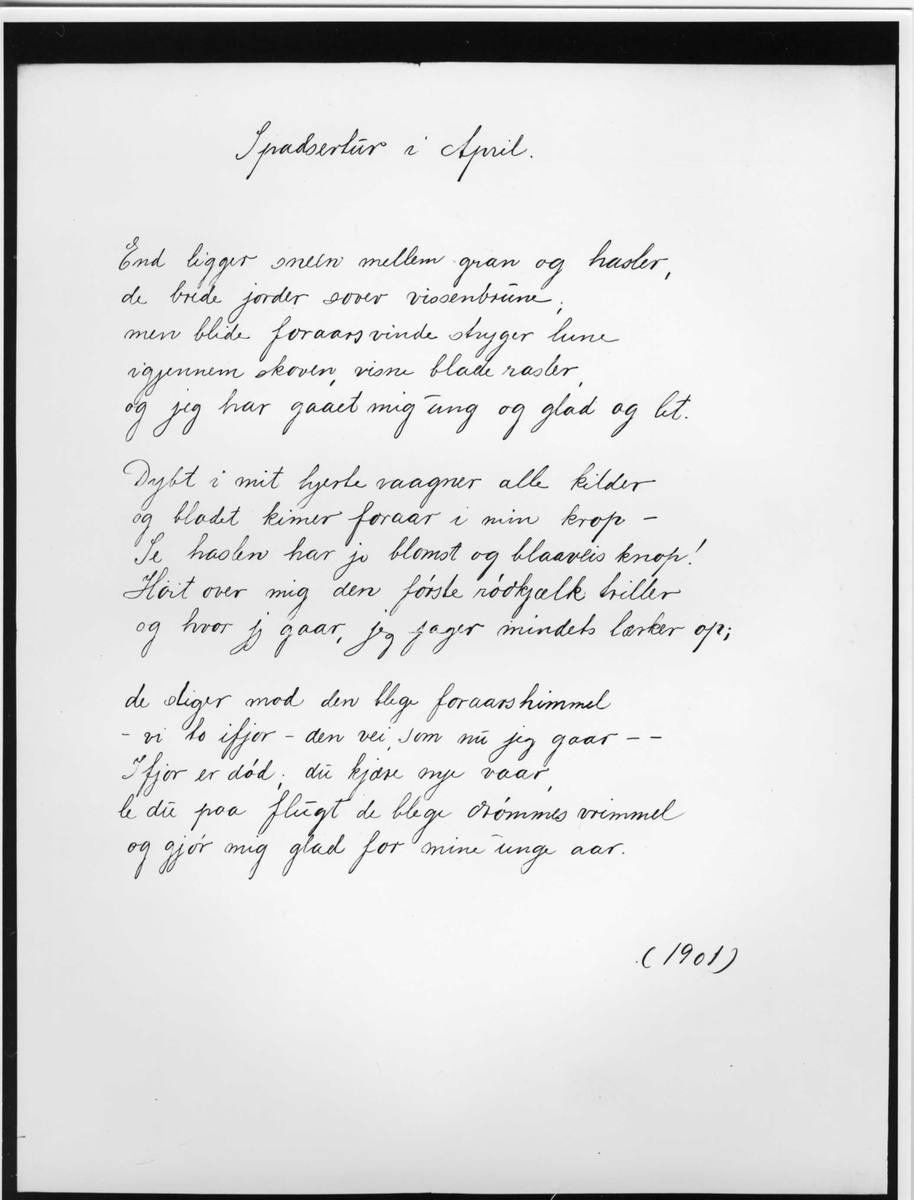 Spadsertur i April.
End ligger sneen mellem gran og hasler,
de brede jorder sover vissenbrune,
men blide foraarsvinde stryger lune
igjennem skoven, visne blade rasler,
og jeg har gaaet mig ung og glad og let.
Dybt i mit hjerte vaagner alle kilder
og blodet kimer foraar i min krop –
Se haslen har jo blomst og blaaveis knop!
Høit over mig den første rødkjælk triller
og hvor jeg gaar, jeg jager mindets lærker op;
de stiger mod den blege foraarshimmel
– vi to ifjor – den vei, som nu jeg gaar – –
Ifjor er død; du kjære nye vaar,
le du paa flugt de blege drømmes vrimmel
og gjør mig glad for mine unge aar.
(1901)